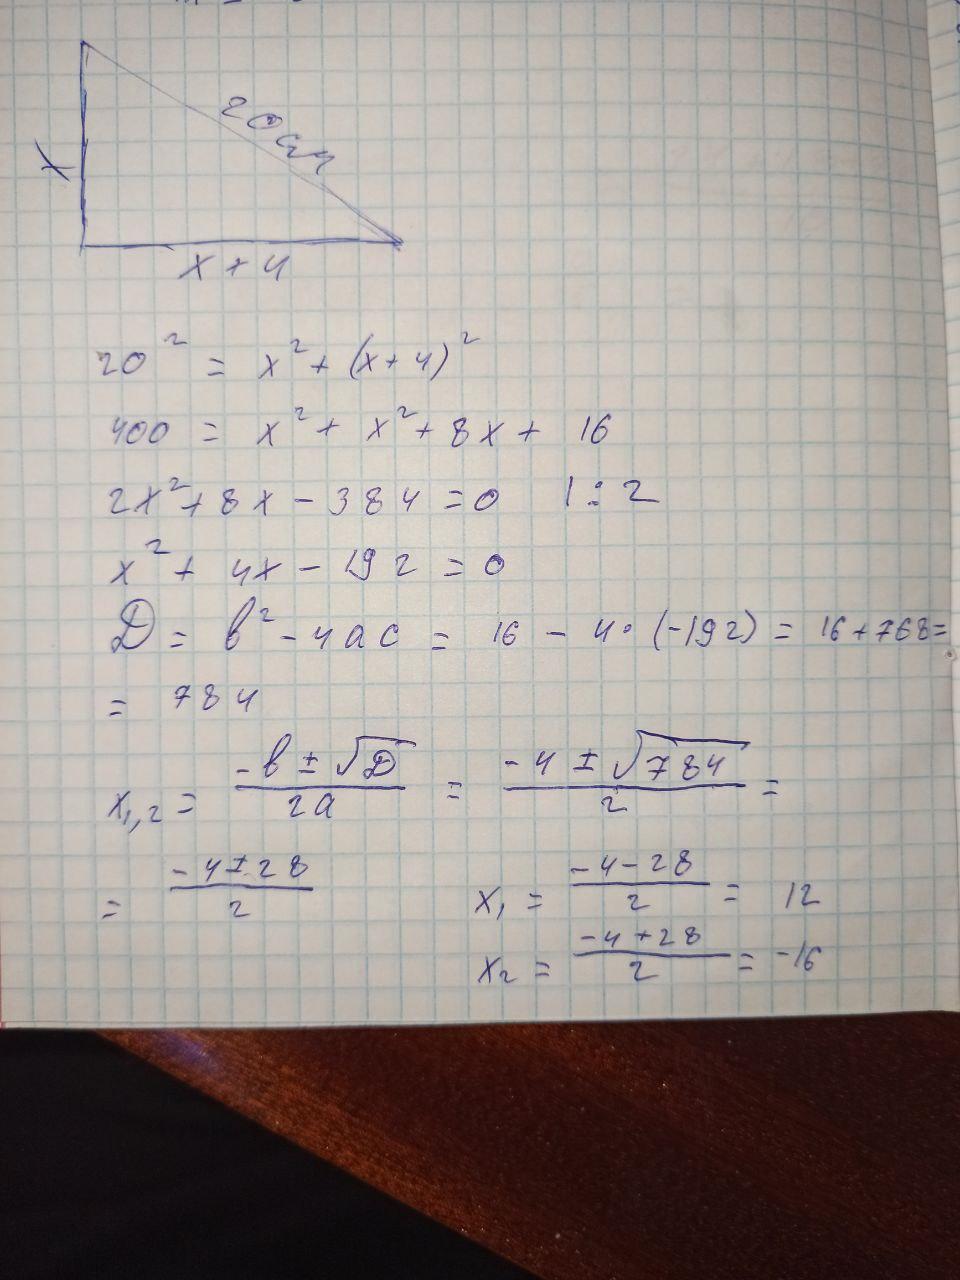 20см
x
x + 4
20² = x² + (x + 4)²
400 = x² + x² + 8x + 16
2x² + 8x - 384 = 0 | : 2
x² + 4x - 192 = 0
D = b² - 4ac = 16 - 4·(-192) = 16 + 768 =
= 784
x₁,₂ = (-b ± √D)/(2a) = (-4 ± √784)/2 =
= (-4 ± 28)/2
x₁ = (-4 - 28)/2 = 12
x₂ = (-4 + 28)/2 = -16